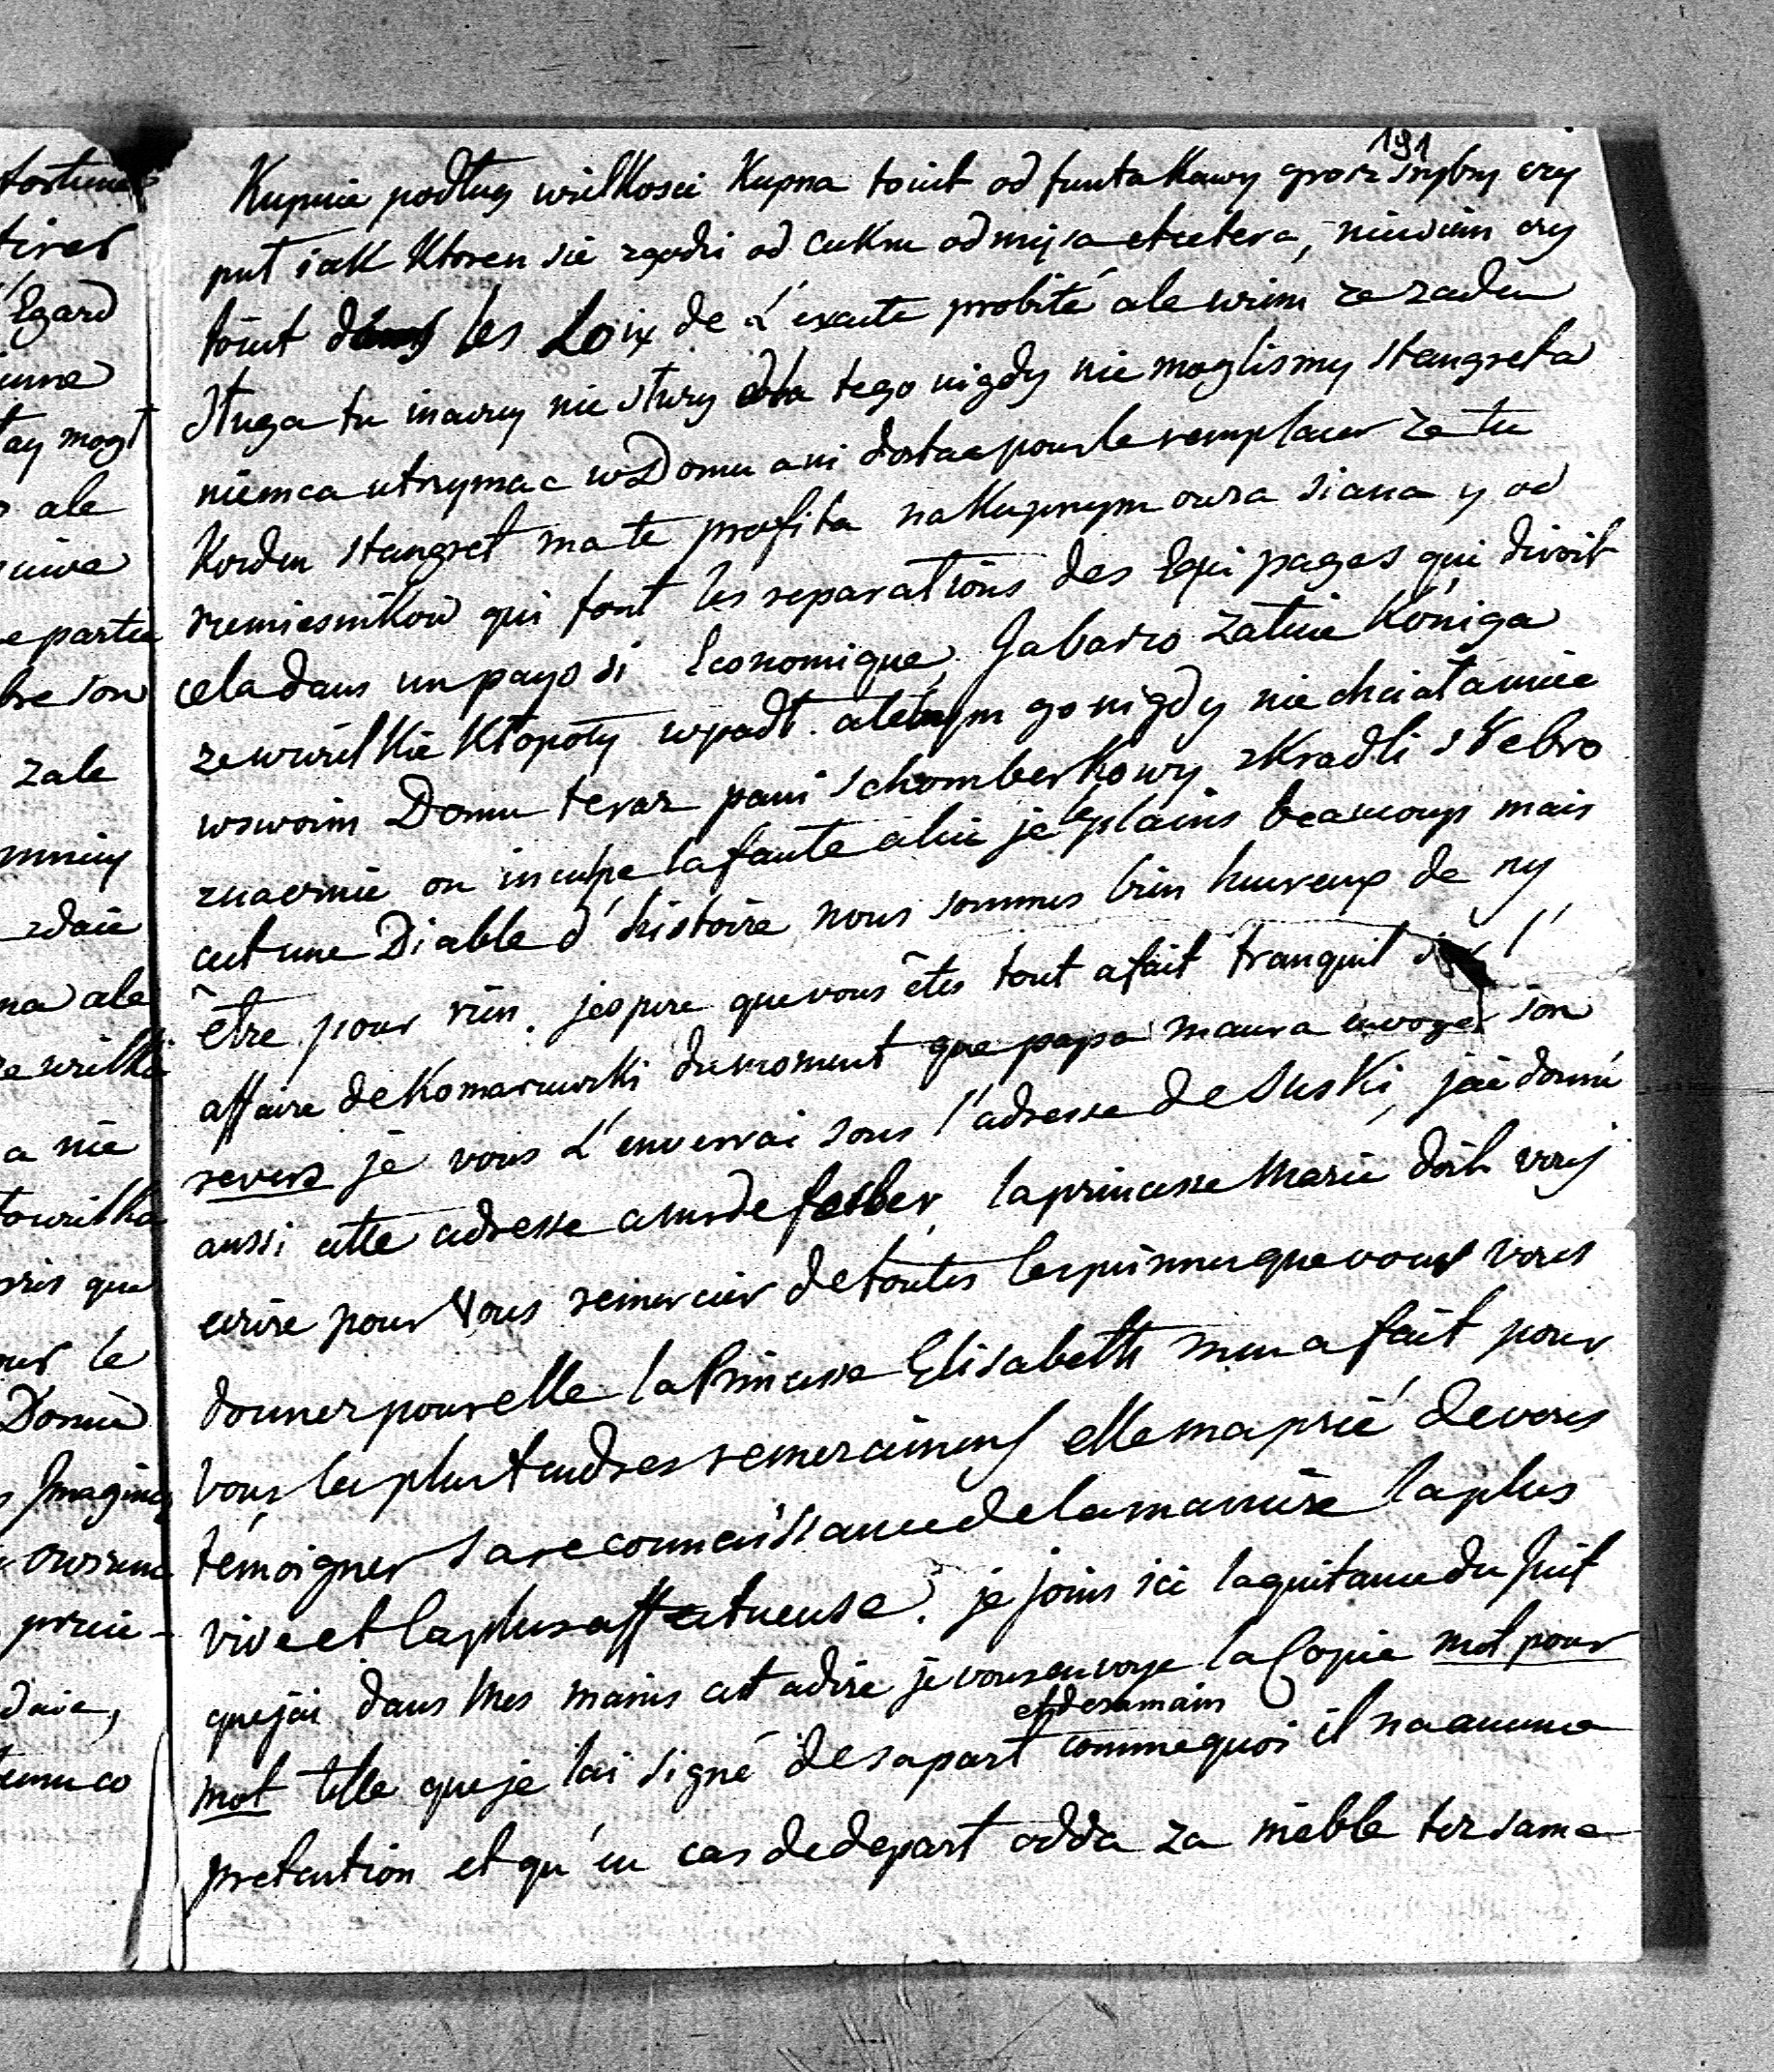 191
Kupnie podług wielkosci Kupna toiest od funta Kawy grosz srybny czy
puł iak Ktoren sie zgodzi od Cukru od mięsa etcetera, niewiem czy
toiest les Loix de L'exacte probité ale wiem ze zaden
Sługa tu inaczy nie słuzy dla tego nigdy nie moglismy stangreta
niemca utrzymac w Domu ani dostac pour le remplacer ze tu
Korden stangret ma te profita na Kupnym owsa siana y od
rzemiesnikow qui font les reparations des Equipages qui diroit
cela dans un pays si Economique, Ja bardzo zaluie Königa
ze w wielkie Kłopoty wpadł. ale bym go nigdy nie chciała miec
w swoim Domu teraz pani Schomberkowy skradli srebro
znacznie on inculpe la faute a lui je le plains beaucoup mais
cest une Diable d'histoire nous sommes bien heureux de ny
être pour rien. jespere que vous êtes tout a fait tranquil l'
affaire de Komarzewski du moment que papa maura envoyer son
revers je vous L'enverrai sous l'adresse de Suski, jai donné
aussi cette adresse a mr de ferber, la princesse Marie doit vous
ecrire pour Vous remercier de toutes les peinnes que vous vous
donner pour elle la Princesse Elisabeth men a fait pour
vous les plus tendres remerciments elle ma prié de vous
témoigner sa reconnaissance de la maniere la plus
vive et la plus affectueuse. je joins ici la quitance du Juif
que jai dans Mes mains cet adire je vous envoye la Copie mot pour
mot telle que je lai signé de sa part et de sa main comme quoi il na aucune
pretention et qu'en cas de depart odda za meble tez same